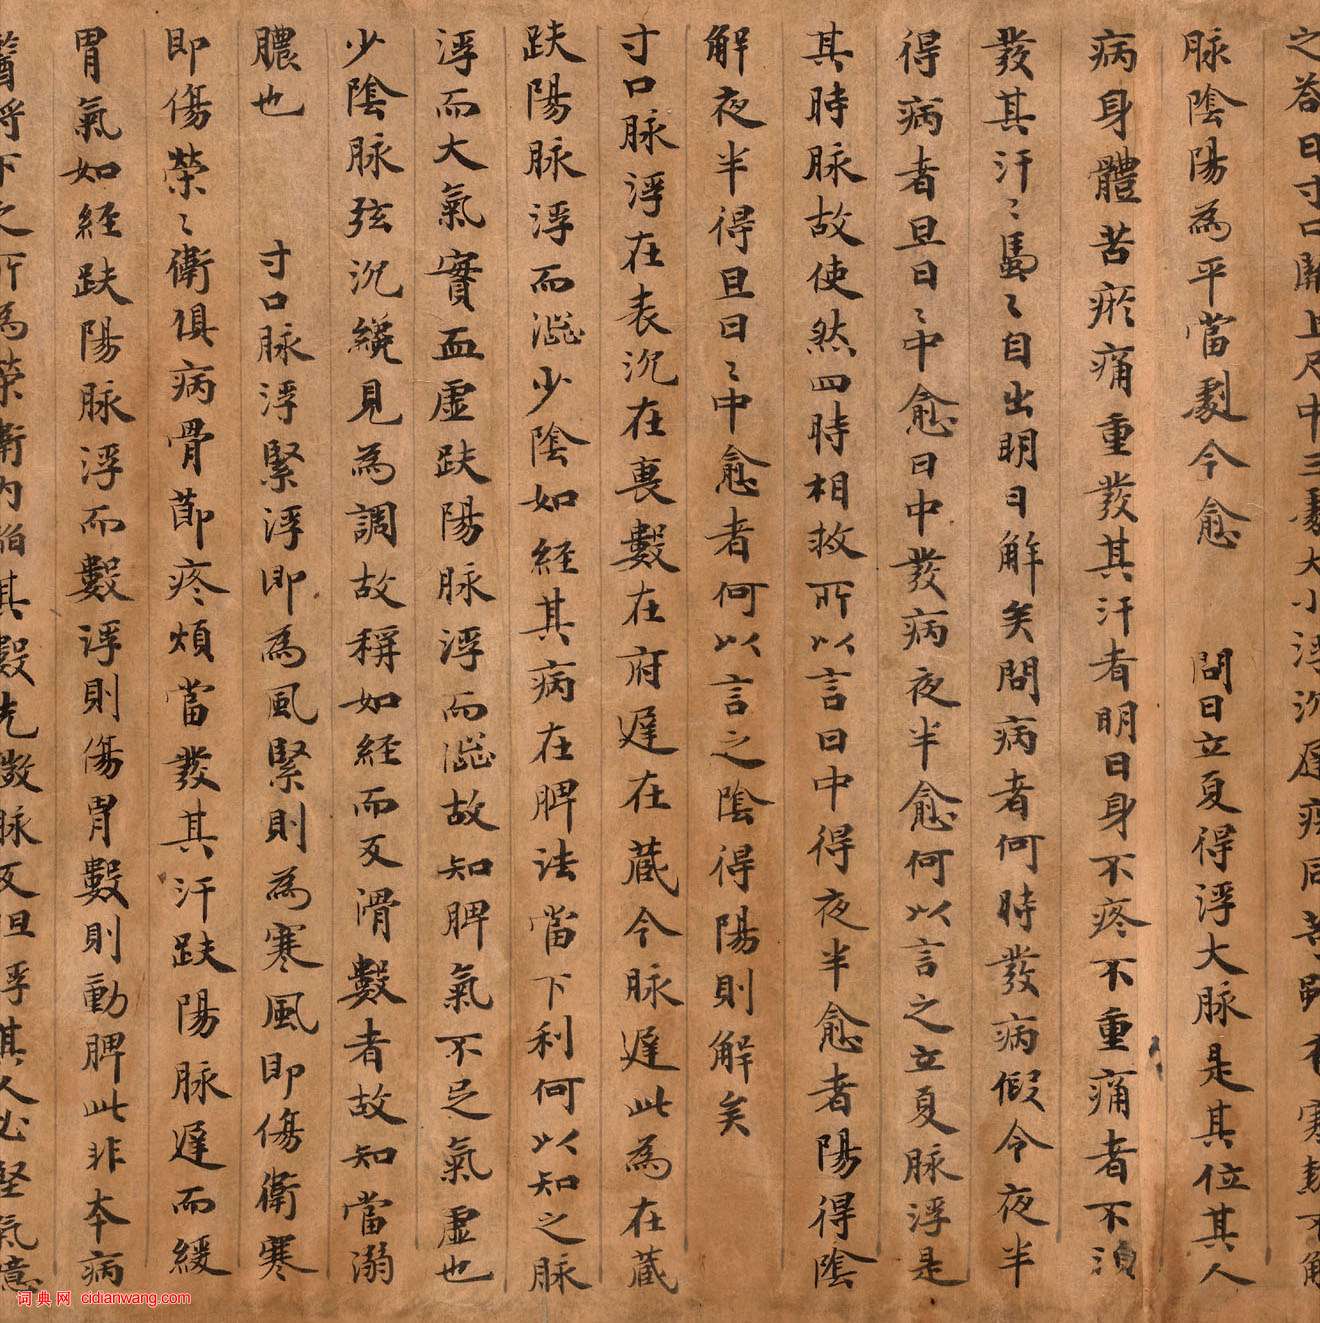 之荅曰寸口關上尺中三處大小浮沉遲疾同等雖有寒熱不解
脉陰陽為平當劇今愈　問曰立夏得浮大脉是其位其人
病身體苦瘀痛重發其汗者明日身不疼不重痛者不須
發其汗〻濈〻自出明日解矣問病者何時發病假令夜半
得病者旦日〻中愈日中發病夜半愈何以言之立夏脉浮是
其時脉故使然四時相救所以言日中得夜半愈者陽得陰
解夜半得旦日〻中愈者何以言之陰得陽則解矣
寸口脉浮在表沉在裏數在府遲在藏今脉遲此為在藏
趺陽脉浮而澁少陰如經其病在脾法當下利何以知之脉
浮而大氣實血虛趺陽脉浮而澁故知脾氣不足氣虛也
少陰脉弦沉纔見為調故稱如經而反滑數者故知當溺
膿也　寸口脉浮緊浮即為風緊則為寒風即傷衛寒
即傷榮〻衛俱病骨節疼煩當發其汗趺陽脉遲而緩
胃氣如經趺陽脉浮而數浮則傷胃數則動脾此非本病
醫將下之所為榮衛內陷其數先微脉反但浮其人必堅氣噫
词典网 cidianwang.com